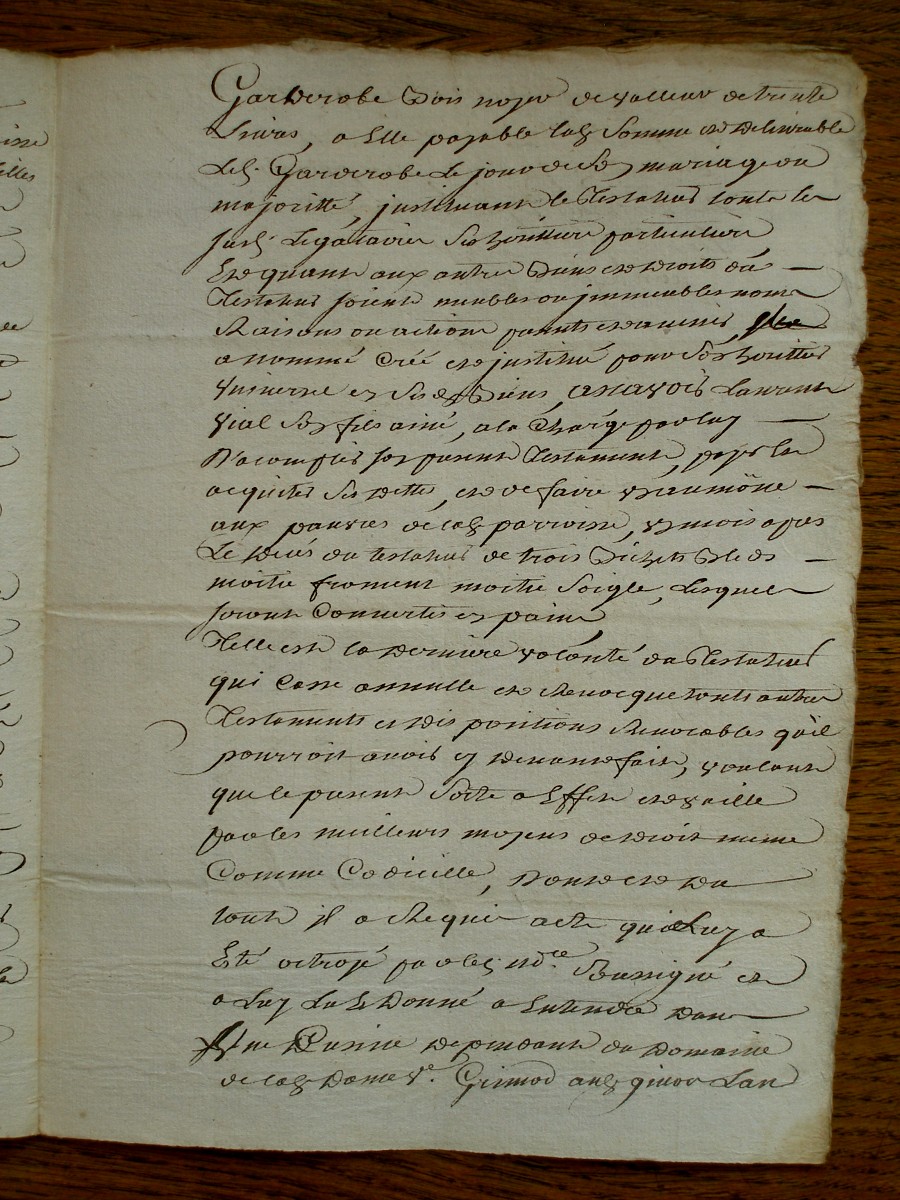 Garderobe Bois noyer de valleur de trente
Livres, a Elle payable lad. Somme et delivrable
Led. Garderobe Le jour de Son mariage ou
majoritté, jnstituant le Testateur toute les
susd. Legataires Ses heritiere particuliere
Et quant aux autre Biens et droits du
Testateur soient meubles ou jmmeubles noms
Raisons ou actions presents et avenir,
a nommé Créé et jnstitué pour Son heritier
Vniversel en Sesd. Biens, ascavoir Laurent
Vial Son fils ainé, a la Charge par luy
D'acomplir son present Testament, payer les
acquiter Ses dettes, et de faire vne aumône
aux pauvres de lad. parroisse, vn mois apres
Le decés du testateur de trois Bichets Bleds
moitié froment moitié Soigle, Lesquel
seront Convertis en pains,
Telle est la derniere volonté du Testateur
qui Casse annulle et Revocque touts autres
Testaments et dispositions Revocables qu'il
pourroit avoir cy devant fait, voulant
que le present Sorte a Effet et vaille
par les meilleurs moyens de droit meme
Comme Codicille, dont et du
tout jl a Requis acte qui Luy a
Eté octroyé par led. nore Soussigné et
a Luy Lu et Donné a Entendre dans
Vne Cuisine dependante du Domaine
de lad. Dame Ve. Grimod aud. givor L'an